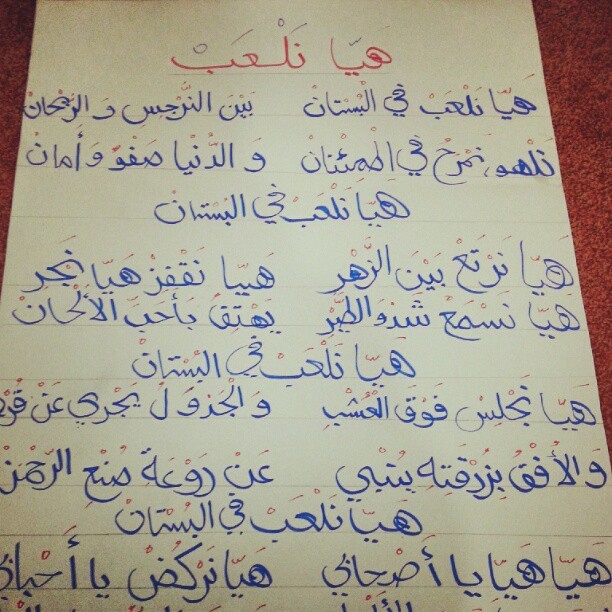 هَيَّا نَلْعَبْ
هَيَّا نَلْعَبْ فِي البُسْتَانْ بَيْنَ النَّرْجِسِ وَ الرَّيْحَانْ
نَلْهو، نَمْرَحُ في اطْمِئْنانْ وَ الدُّنْيا صَفْوٌ وَ أَمانْ
هَيَّا نَلْعَبْ في البُسْتانْ
هَيَّا نَرْتَعْ بَيْنَ الزَّهْرِ هَيـيّا نَقْفِزْ هَيَّا نَجْرِ
هَيَّا نَسْمَعْ شَدْوَ الطَّيْرِ يَهْتِفُ بِأَحَبِّ الأَلْحَانْ
هَيَّا نَلْعَبْ فِي البُسْتانْ
هَيَّا نَجْلِسْ فَوْقَ الْعُشْبِ وَ الْجَدْوَلُ يَجْرِي عَنْ قُرْ
وَالأُفْقُ بِزُرْقَتِهِ يُنْبِي عَنْ رَوْعَةِ صُنْعِ الرَّحْمَنْ
هَيَّا نَلْعَبْ فِي البُسْتانْ
هَيَّا هَيَّا يا أَصْحابِي هَيَّا نَرْكُضْ يا أَحْبابِي